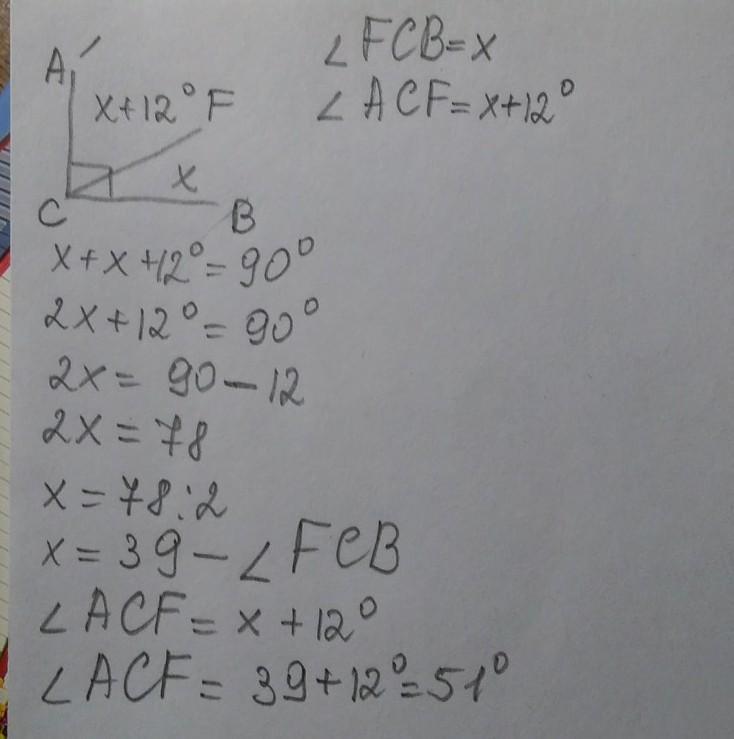 ∠FCB=x
∠ACF=x+12°
A
x+12° F
x
C
B
x+x+12°=90°
2x+12°=90°
2x=90-12
2x=78
x=78:2
x=39-∠FCB
∠ACF=x+12°
∠ACF=39+12°=51°